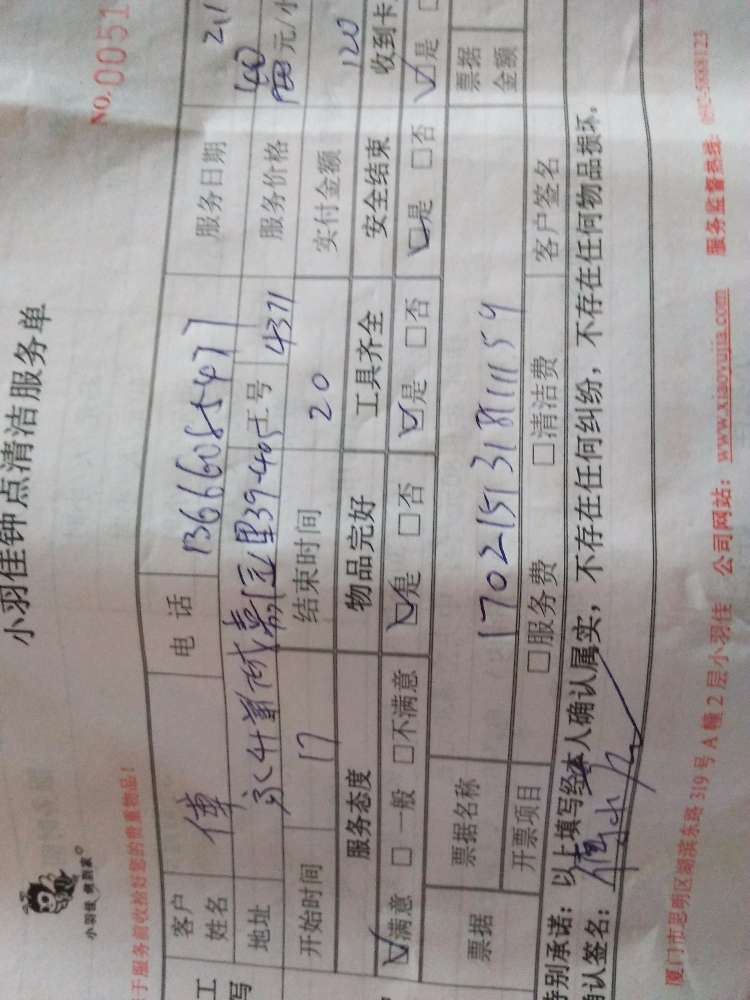 小羽佳钟点清洁服务单
小羽佳 俺的家
NO.0051
于服务前收拾好您的贵重物品!
客户姓名 傅 电话 13666085477 服务日期 211
地址 永升新城嘉 里39-405 工号 4371 服务价格 元/小
开始时间 17 结束时间 20 实付金额 120
服务态度 物品完好 工具齐全 安全结束 收到卡
☑满意 □一般 □不满意 ☑是 □否 ☑是 □否 ☑是 □否 ☑是 □
票据 票据名称 17021513181111159 票据金额
开票项目 □服务费 □清洁费 客户签名
特别承诺:以上填写经本人确认属实,不存在任何纠纷,不存在任何物品损坏,
确认签名:
厦门市思明区湖滨东路319号A幢2层小羽佳 公司网站:www.xiaoyujia.com 服务监督热线:0592-5888123